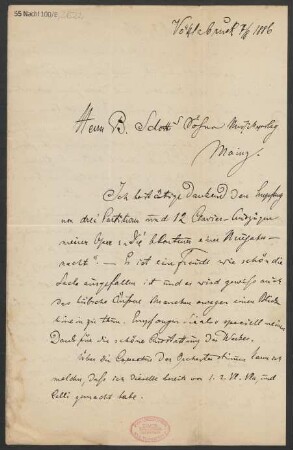 55 Nachl 100/B,
Vöcklabruck 7/6 1886
Herrn B. Schott's Söhne Musikverlag
Mainz.
Ich bestätige dankend den Empfang
von drei Partituren und 12 Clavier-Auszügen
meiner Oper „Die Abenteuer einer Neujahrs-
nacht". – Es ist eine Freude wie schön die
Sache ausgefallen ist und es wird gewiss auch
das hübsche Äußere Manchen anregen einen Blick
hinein zu thun. Empfangen Sie also speciell meinen
Dank für die schöne Ausstattung des Werkes.
Über die Correctur der Orchesterstimmen kann ich
melden, daß ich dieselbe bereits von 1. 2. Vl. Vla, und
Celli gemacht habe.